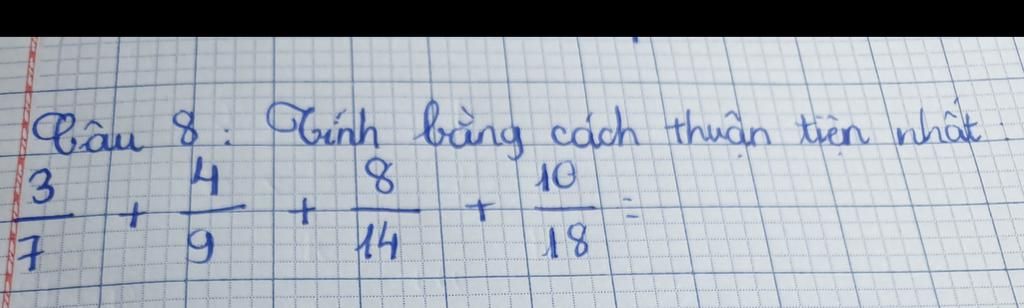 Câu 8: Tính bằng cách thuận tiện nhất:
3/7 + 4/9 + 8/14 + 10/18 =